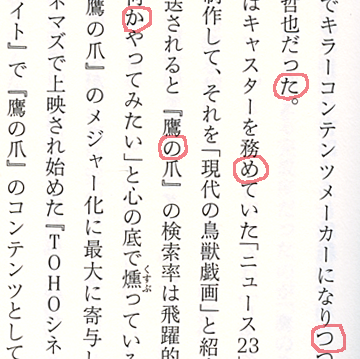 でキラーコンテンツメーカーになりつつ
哲也だった。
はキャスターを務めていた「ニュース23
制作して、それを「現代の鳥獣戯画」と紹
送されると『鷹の爪』の検索率は飛躍的
何かやってみたい」と心の底で燻っている
くすぶ
鷹の爪』のメジャー化に最大に寄与し
ネマズで上映され始めた『TOHOシネ
イト』で『鷹の爪』のコンテンツとして